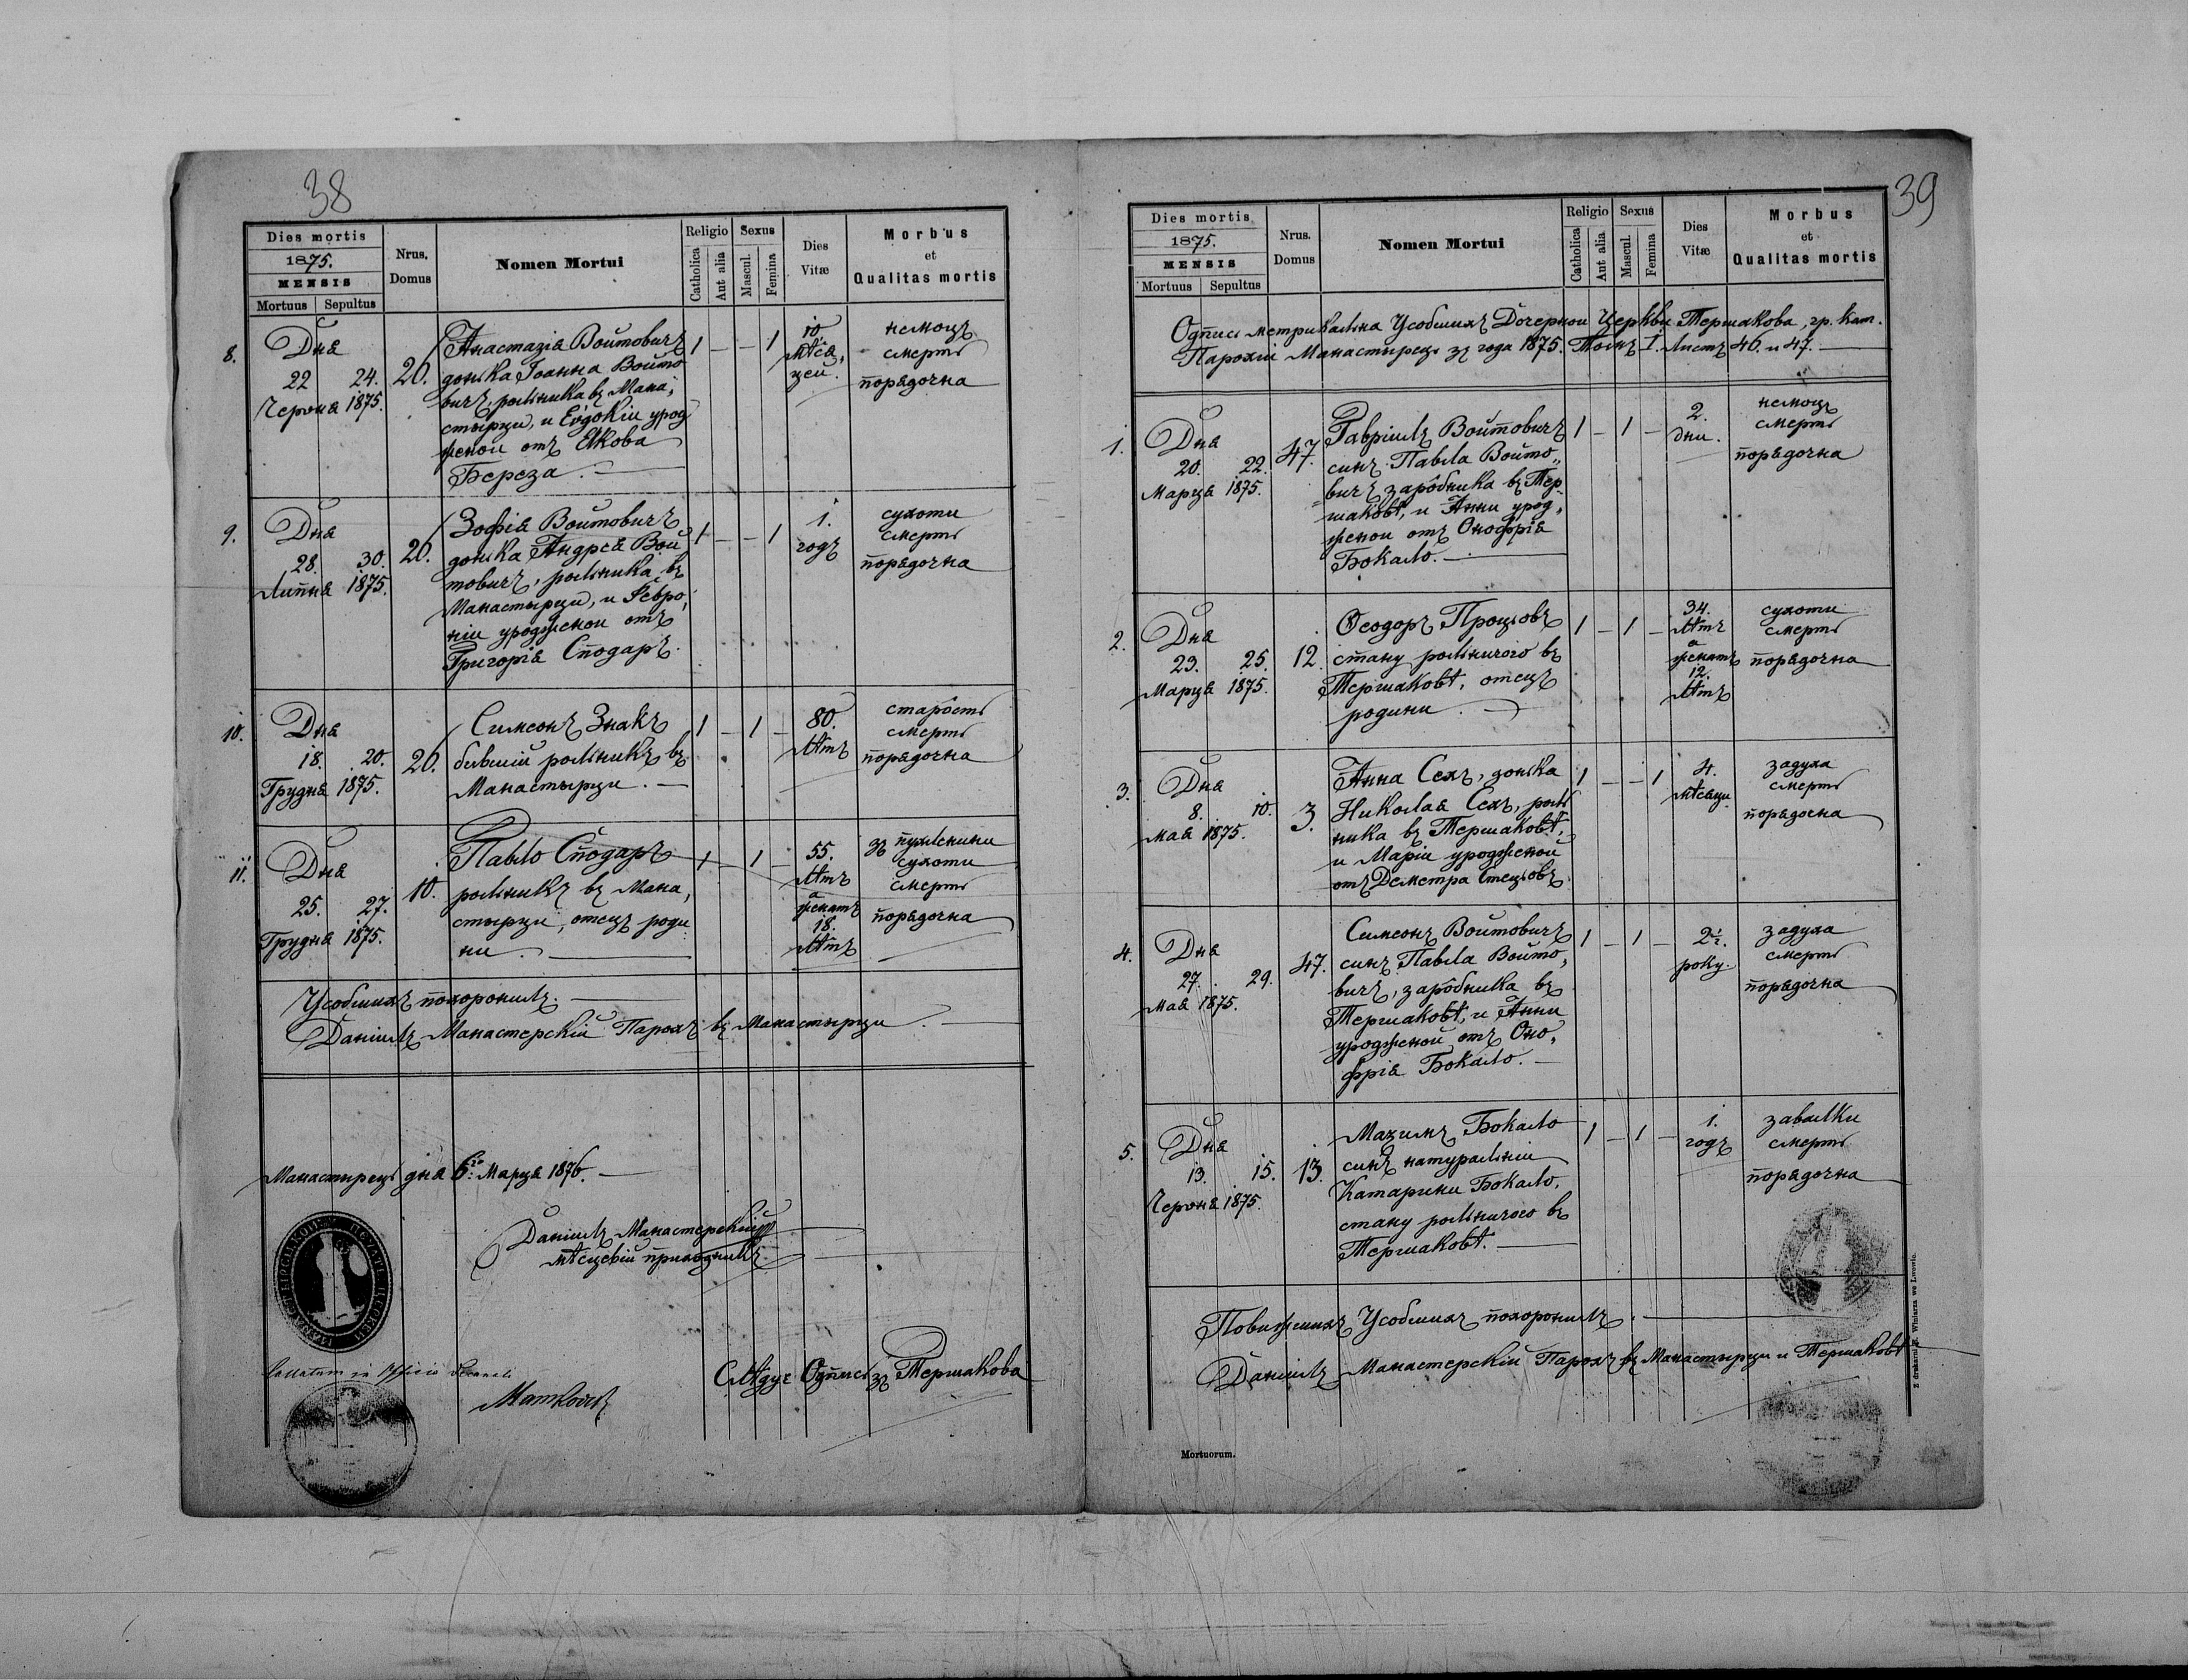 38
Dies mortis
1875.
MENSIS
Mortuus Sepultus
Nrus. Domus
Nomen Mortui
Religio
Catholica
Aut alia
Sexus
Mascul.
Femina
Dies Vitæ
Morbus
et
Qualitas mortis
8. Дня
22 24.
Червня 1875.
20.
Анастазія Войтовичъ
донька Іоанна Войто
вичъ, рольника въ Мана,
стырци, и Евдокіи урод
женои отъ Якова
Береза.
1 – – 1
10
мѣся,
цей.
немоцъ
смерть
порядочна
9. Дня
28. 30.
Липня 1875.
20.
Зофія Войтовичъ
донька Андрея Вой
товичъ, рольника въ
Манастырци, и Февро,
ніи уродженои отъ
Григорія Сподаръ.
1 – – 1
1.
годъ
сухоти
смерть
порядочна
10. Дня
18. 20.
Грудня 1875.
20.
Симеонъ Знакъ
бывшій рольникъ въ
Манастырци.
1 – 1 –
80.
лѣтъ
старость
смерть
порядочна
11. Дня
25. 27.
Грудня 1875.
10.
Павло Сподаръ
рольникъ въ Мана,
стырци, отецъ роди
ни.
1 – 1 –
55.
лѣтъ
а
женатъ
18.
лѣтъ
зъ пухлснини
сухоти
смерть
порядочна
Усобшихъ похоронилъ.
Даніилъ Манастерскій Парохъ въ Манастырци.
Манастырець дня 6го Марця 1876.
Даніилъ Манастерскій
мѣсцевій приходникъ.
Слѣдує Одписъ зъ Тершакова
39
Dies mortis
1875.
MENSIS
Mortuus Sepultus
Nrus. Domus
Nomen Mortui
Religio
Catholica
Aut alia
Sexus
Mascul.
Femina
Dies Vitæ
Morbus
et
Qualitas mortis
Одписъ метрикальна Усобшихъ Дочернои Церкви Тершакова, гр. кат.
Парохіи Манастырець зъ года 1875. Томъ I. Листъ 46. и 47.
1. Дня
20. 22.
Марця 1875.
47.
Гавріилъ Войтовичъ
синъ Павла Войто,,
вичъ заробника въ Тер
шаковѣ, и Анни урод,
женои отъ Онофрія
Бокало.
1 – 1 –
2.
дни.
немоцъ
смерть
порядочна
2. Дня
23. 25.
Марця 1875.
12.
Ѳеодоръ Процьовъ
стану рольничого въ
Тершаковѣ, отецъ
родини.
1 – 1 –
34.
лѣтъ
а
женатъ
12.
лѣтъ
сухоти
смерть
порядочна
3. Дня
8. 10.
Мая 1875.
3.
Анна Сехъ, донька
Николая Сехъ, роль
ника въ Тершаковѣ,
и Маріи уродженой
отъ Деметра Стецьовъ
1 – – 1
4.
мѣсяци
задуха
смерть
порядосна
4. Дня
27. 29.
Мая 1875.
47.
Симеонъ Войтовичъ
синъ Павла Войто,
вичъ, заробника въ
Тершаковѣ, и Анни
уродженой отъ Оно,
фрія Бокало.
1 – 1 –
2½.
року.
задуха
смерть
порядочна
5. Дня
13. 15.
Червня 1875.
13.
Мазимъ Бокало
синъ натуральній
Катарини Бокало,
стану рольничого въ
Тершаковѣ.
1 – 1 –
1.
годъ
завалки
смерть
порядочна
Повижшихъ Усобшихъ похоронилъ.
Даніилъ Манастерскій Парохъ въ Манастырци и Тершаковѣ
Mortuorum.
Z drukarni E. Winiarza we Lwowie.